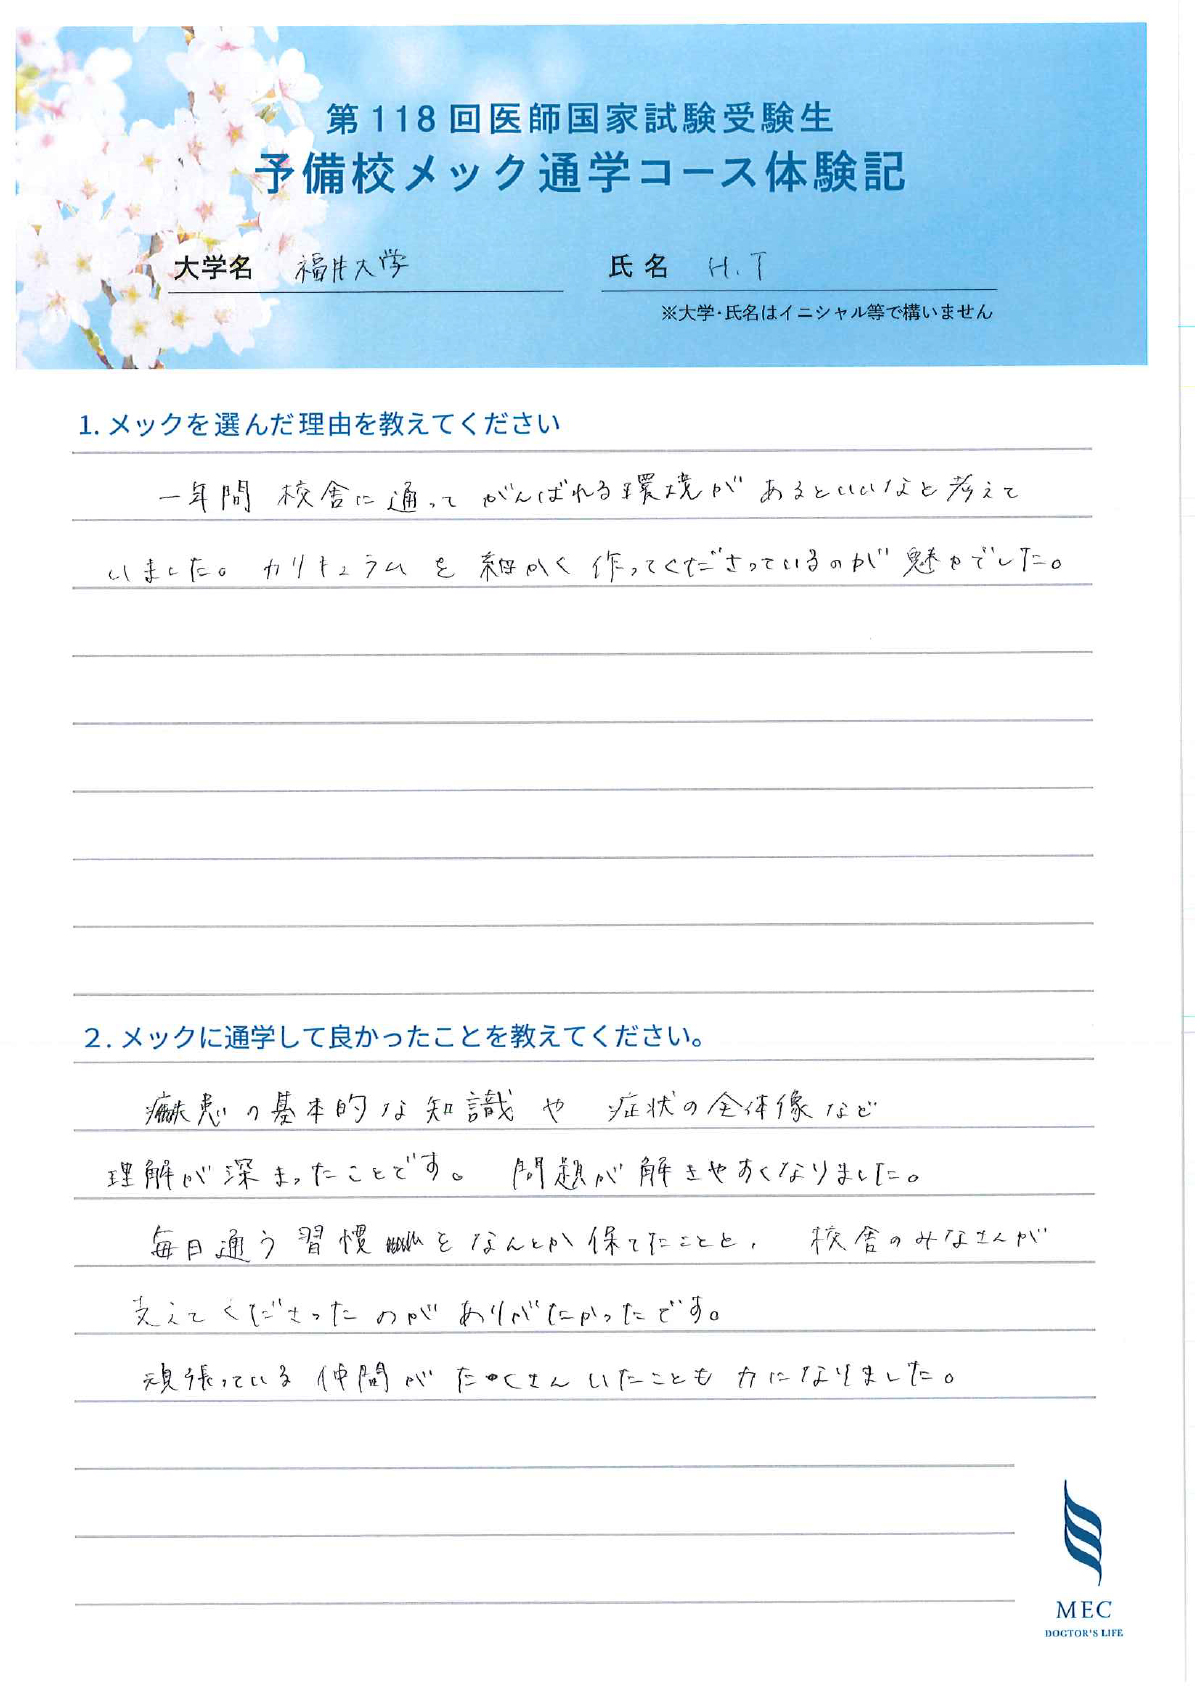 第118回医師国家試験受験生
予備校メック通学コース体験記
大学名 福井大学 氏名 H.T
※大学・氏名はイニシャル等で構いません
1. メックを選んだ理由を教えてください
一年間 校舎に通って がんばれる環境が あるといいなと考えて
いました。カリキュラム を 細かく 作ってくださっているのが 魅力でした。
2. メックに通学して良かったことを教えてください。
疾患の基本的な知識 や 症状の全体像など
理解が深まったことです。 問題が解きやすくなりました。
毎日通う習慣をなんとか保てたことと、 校舎のみなさんが
支えてくださったのが ありがたかったです。
頑張っている仲間が たくさん いたことも 力になりました。
MEC
DOCTOR'S LIFE